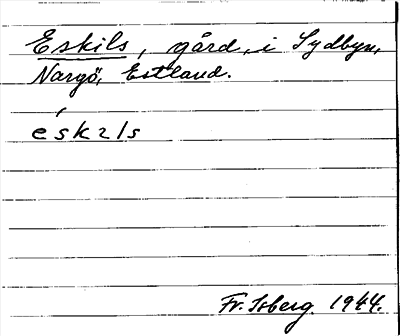 Eskils, gård, i Sydbyn,
Nargö, Estland.
éskɩls
Fr. Isberg. 1944.